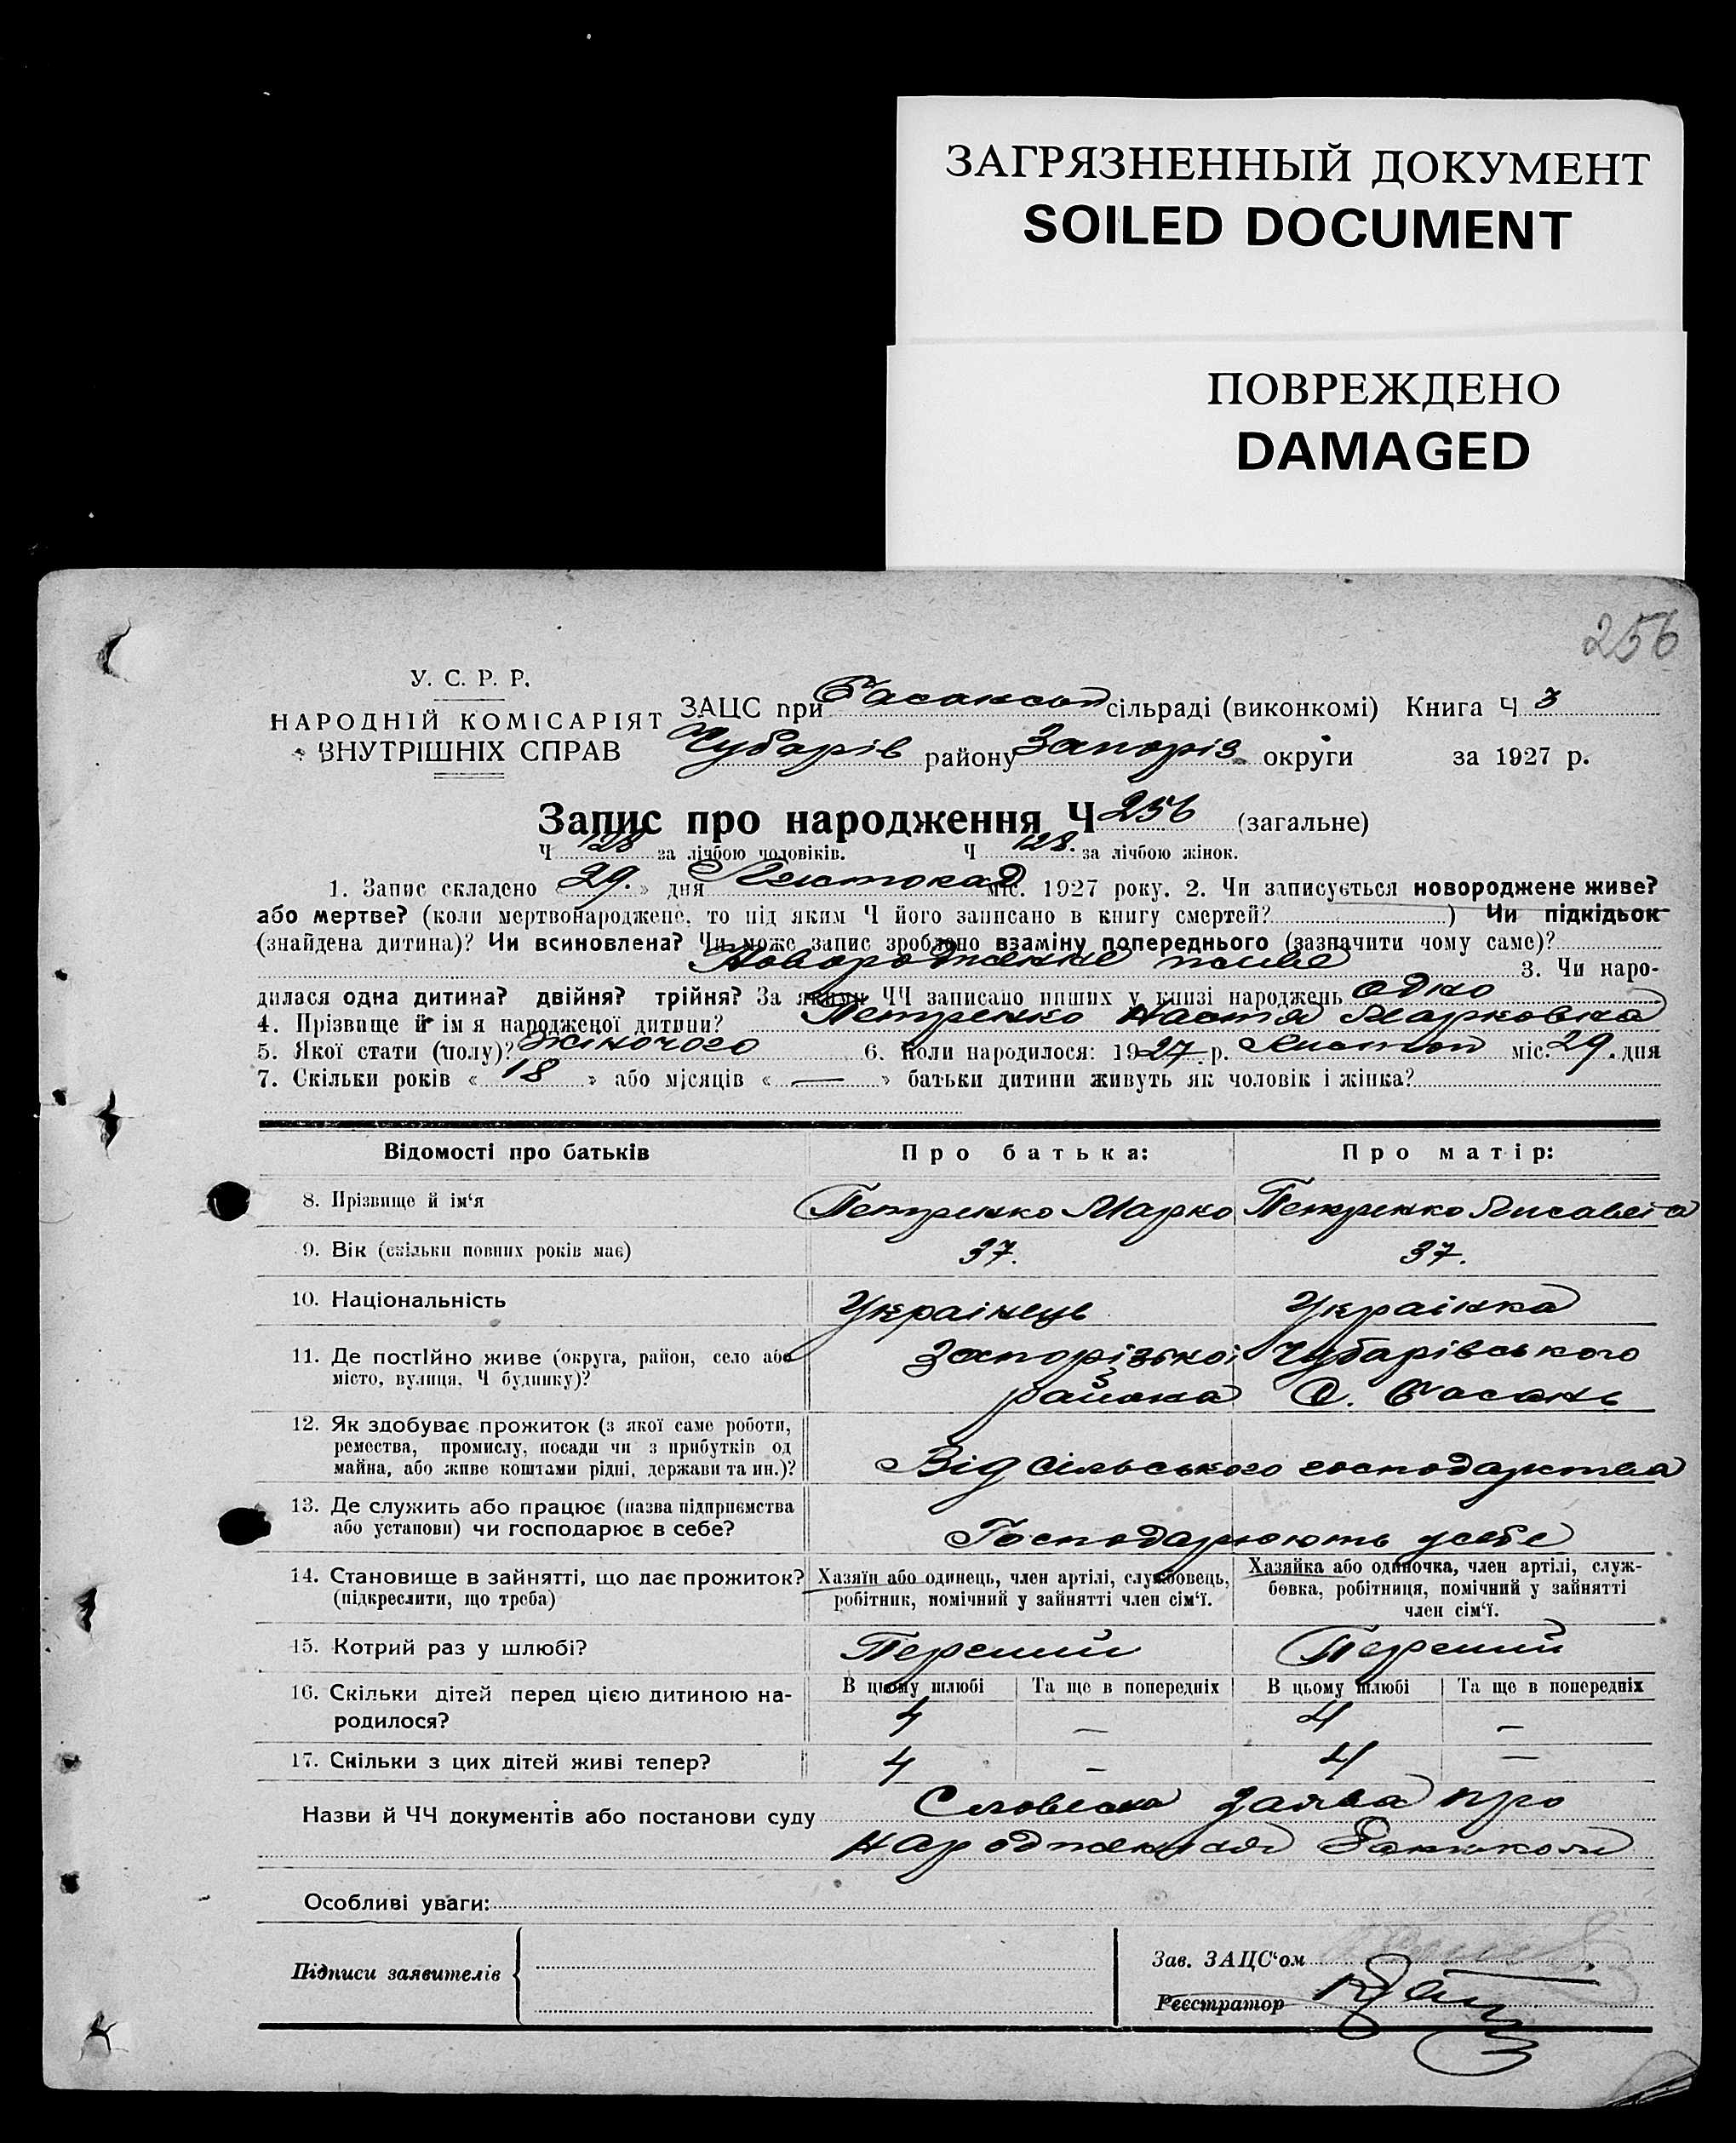 ЗАГРЯЗНЕННЫЙ ДОКУМЕНТ
SOILED DOCUMENT
ПОВРЕЖДЕНО
DAMAGED
256
У. С. Р. Р.
НАРОДНІЙ КОМІСАРІЯТ
ВНУТРІШНІХ СПРАВ
ЗАЦС при Басанськ сільраді (виконкомі) Книга Ч 3
Чубарів району Запоріз. округи за 1927 р.
Запис про народження Ч 256 (загальне)
Ч 128 за лічбою чоловіків. Ч 128. за лічбою жінок.
1. Запис складено « 29. » дня Листопад міс. 1927 року. 2. Чи записується новороджене живе?
або мертве? (коли мертвонароджене, то під яким Ч його записано в книгу смертей? ) Чи підкідьок
(знайдена дитина)? Чи всиновлена? Чи може запис зроблено взаміну попереднього (зазначити чому саме)?
Новорожденне живе 3. Чи наро-
дилася одна дитина? двійня? трійня? За якими ЧЧ записано инших у книзі народжень одно
4. Прізвище й ім я народженої дитини? Петренко Настя Марковна
5. Якої стати (полу)? Жіночого 6. Коли народилося: 1927 р. Листоп міс. 29. дня
7. Скільки років « 18 » або місяців « — » батьки дитини живуть як чоловік і жінка?
Відомості про батьків Про батька: Про матір:
8. Прізвище й ім‘я Петренко Марко Петренко Лисавета
9. Вік (скільки повних років має) 37. 37.
10. Національність Українець Українка
11. Де постійно живе (округа, район, село або Запорізької Чубарівського
місто, вулиця, Ч будинку)? района С. Басань
12. Як здобуває прожиток (з якої саме роботи,
ремества, промислу, посади чи з прибутків од
майна, або живе коштами рідні, держави та ин.)? Від сільського господарства
13. Де служить або працює (назва підприємства
або установи) чи господарює в себе? Господарюють у себе
14. Становище в зайнятті, що дає прожиток? Хазяїн або одинець, член артілі, службовець, Хазяйка або одиночка, член артілі, служ-
(підкреслити, що треба) робітник, помічний у зайнятті член сім‘ї. бовка, робітниця, помічний у зайнятті
член сім‘ї.
15. Котрий раз у шлюбі? Перший Перший
16. Скільки дітей перед цією дитиною на- В цьому шлюбі Та ще в попередніх В цьому шлюбі Та ще в попередніх
родилося? 4 — 4 —
17. Скільки з цих дітей живі тепер? 4 — 4 —
Назви й ЧЧ документів або постанови суду Словесна заява про
народження
Особливі уваги:
Підписи заявителів
Зав. ЗАЦС‘ом
Реєстратор